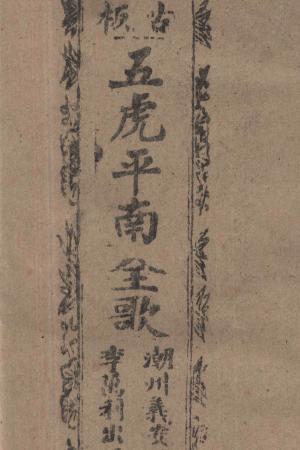 古板
五虎平南全歌
潮州義安
李萬利出